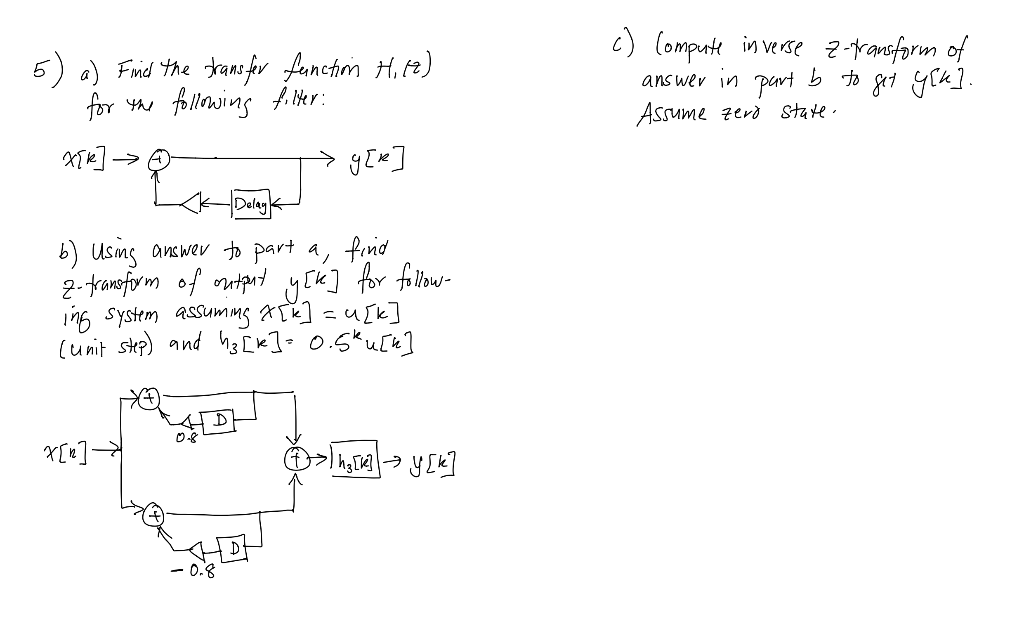 5) a) Find the transfer function H₁(z)
for the following filter:
x[k] → + → y[k]
Delay
b) Using answer to part a, find
z-transform of output y[k] for follow-
ing system assuming x[k] = u[k]
(unit step) and h₃[k] = 0.5ᵏu[k]
+ D
0.8
x[k] → + → h₃[k] → y[k]
+
D
- 0.8
c) Compute inverse z-transform of
answer in part b to get y[k].
Assume zero state.